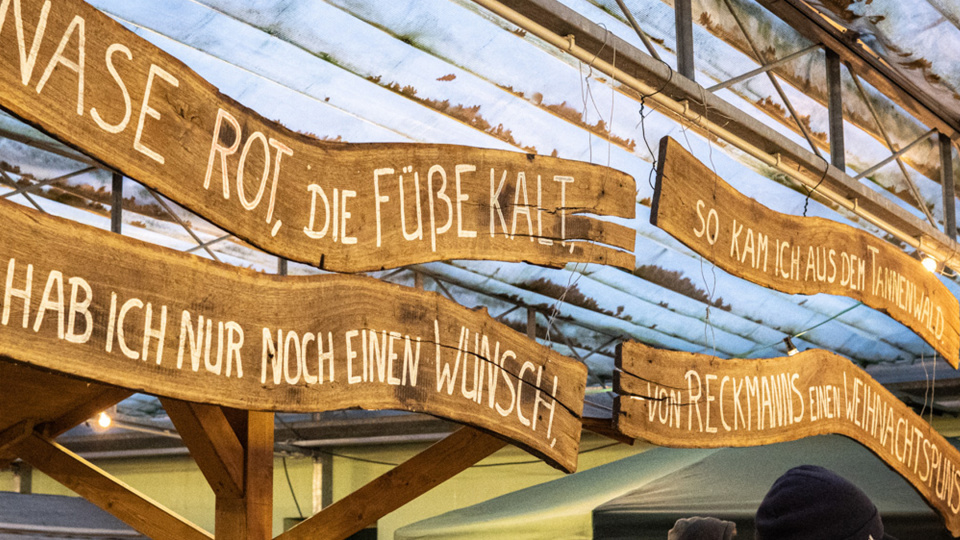 NASE ROT, DIE FÜßE KALT,
SO KAM ICH AUS DEM TANNENWALD.
HAB ICH NUR NOCH EINEN WUNSCH,
-VON RECKMANNS EINEN WEIHNACHTSPUNS